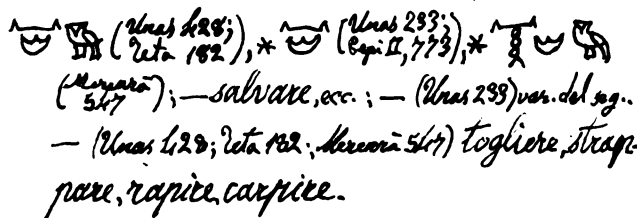 (Unas 428; Teta 182), * (Unas 233; Pepi II, 773), *
(Merenrā 547); — salvare, ecc.; — (Unas 233) var. del seg..
— (Unas 428; Teta 182; Merenrā 547) togliere, strap-
pare, rapire, carpire.